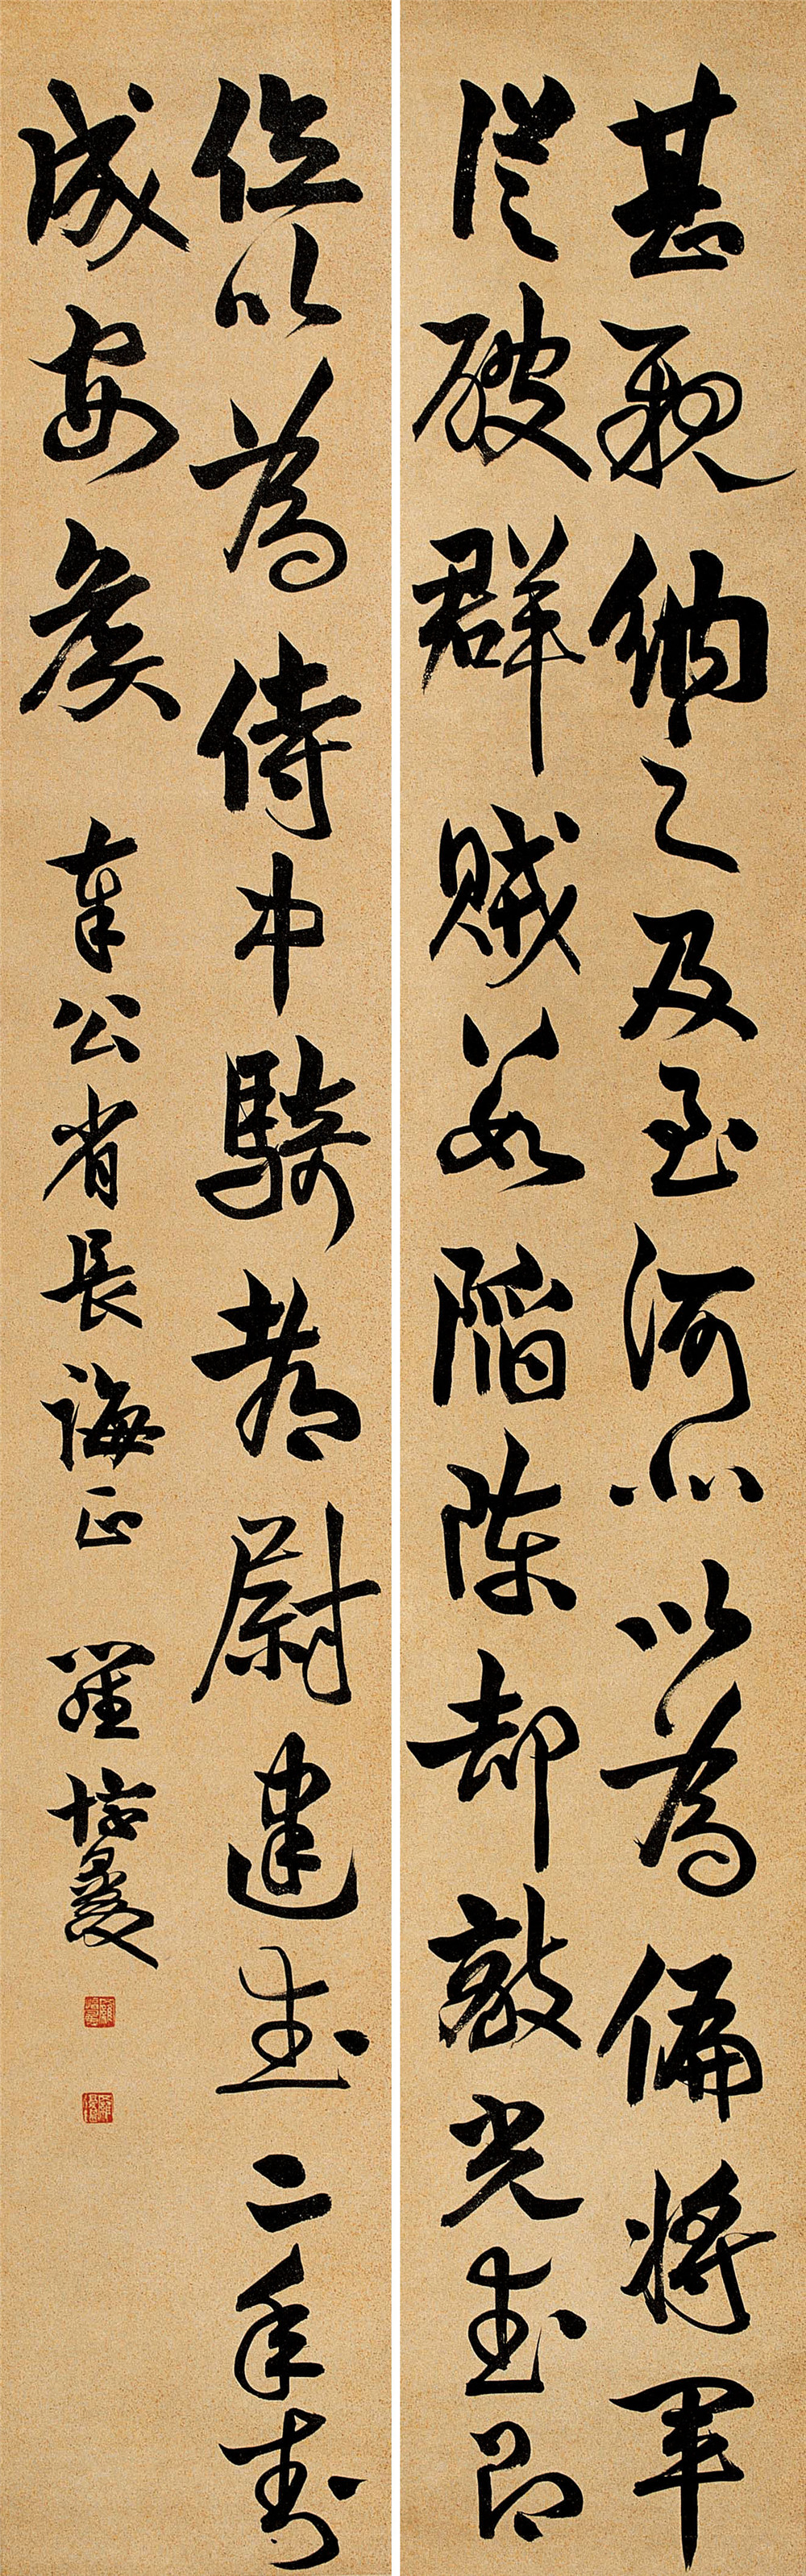 甚親納之及至河北以為偏將軍
從破群賊數陷陳却敵光武即
位以為侍中騎都尉建武二年封
成安侯
公省長誨正 羅惇㬊